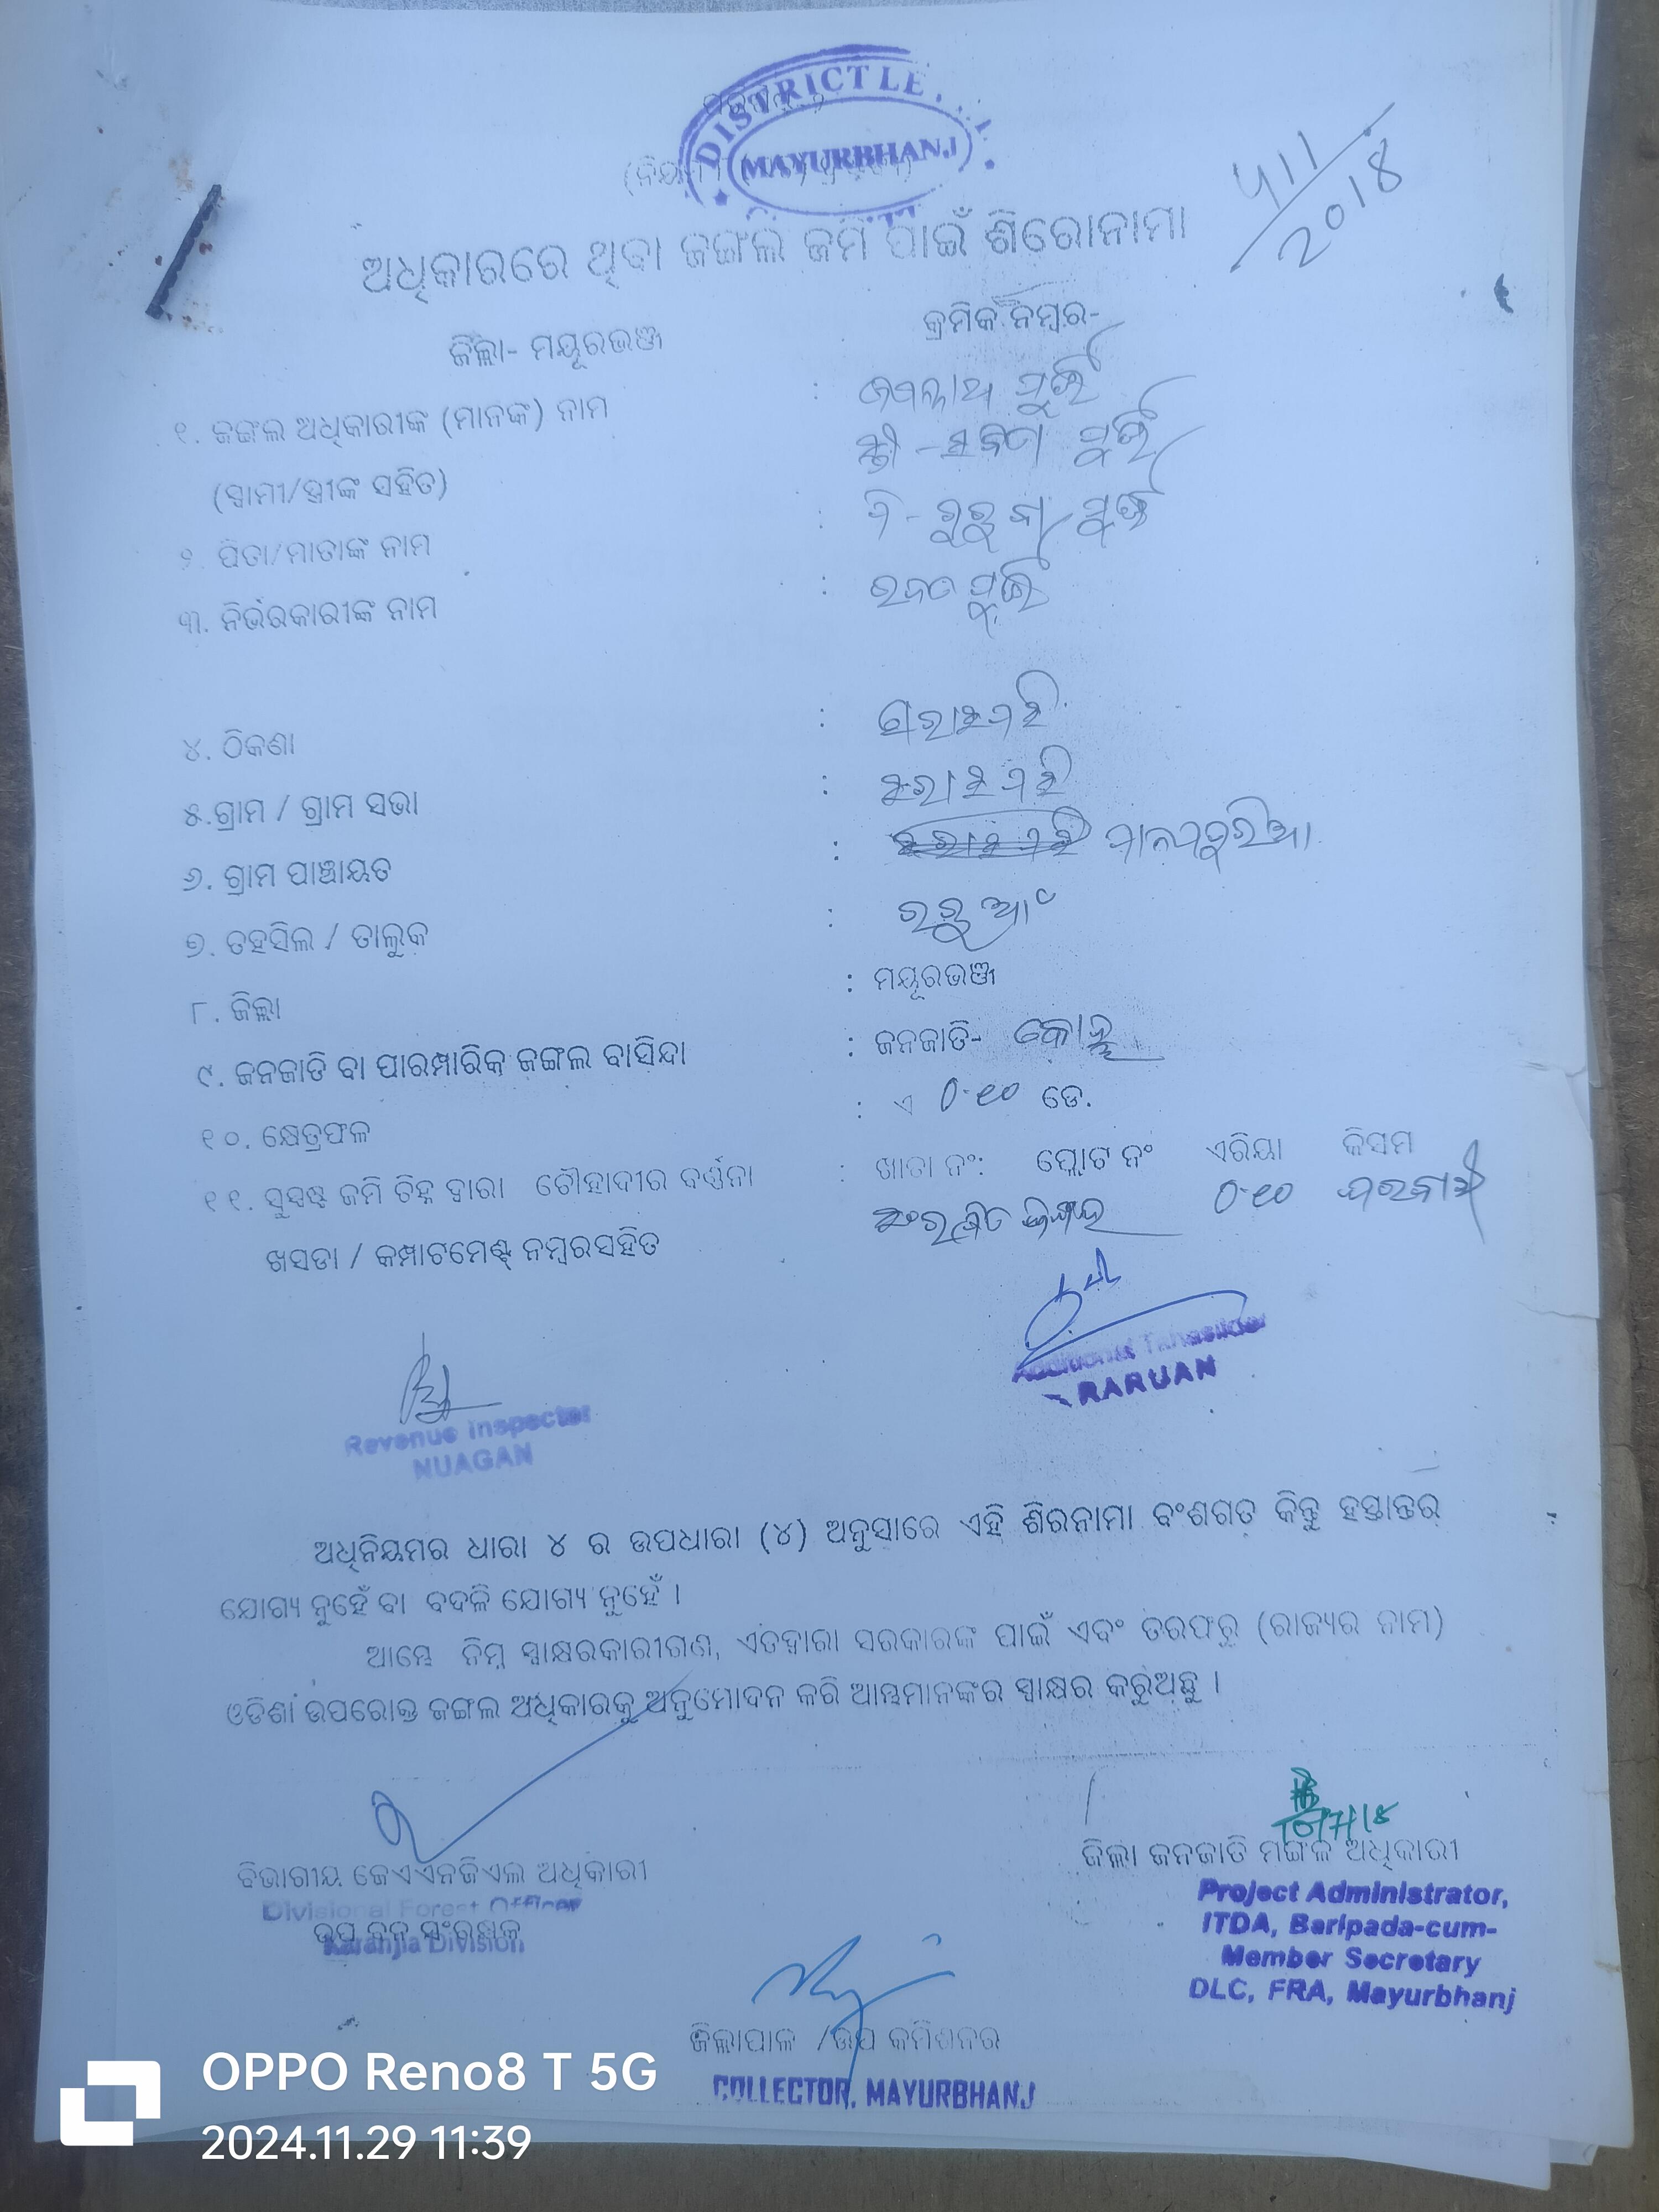 DISTRICT LE
MAYURBHANJ
୫11/2018
ଅଧିକାରରେ ଥିବା ଜଙ୍ଗଲ ଜମି ପାଇଁ ଶିରୋନାମା
ଜିଲ୍ଲା- ମୟୂରଭଞ୍ଜ କ୍ରମିକ ନମ୍ବର-
୧. ଜଙ୍ଗଲ ଅଧିକାରୀଙ୍କ (ମାନଙ୍କ) ନାମ :
(ସ୍ୱାମୀ/ସ୍ତ୍ରୀଙ୍କ ସହିତ) ସ୍ତ୍ରୀ -
୨. ପିତା/ମାତାଙ୍କ ନାମ :
୩. ନିର୍ଭରକାରୀଙ୍କ ନାମ :
୪. ଠିକଣା :
୫.ଗ୍ରାମ / ଗ୍ରାମ ସଭା :
୬. ଗ୍ରାମ ପାଞ୍ଚାୟତ :
୭. ତହସିଲ / ତାଲୁକ : ରରୁଆଁ
୮. ଜିଲ୍ଲା : ମୟୂରଭଞ୍ଜ
୯. ଜନଜାତି ବା ପାରମ୍ପାରିକ ଜଙ୍ଗଲ ବାସିନ୍ଦା : ଜନଜାତି- କୋହ୍ଲ
୧୦. କ୍ଷେତ୍ରଫଳ : ଏ 0.୧୦ ଡେ.
୧୧. ସୁସ୍ପଷ୍ଟ ଜମି ଚିହ୍ନ ଦ୍ୱାରା ଚୌହାଦୀର ବର୍ଣ୍ଣନା : ଖାତା ନଂ: ପ୍ଲୋଟ ନଂ ଏରିୟା କିସମ
ଖସଡା / କମ୍ପାଟମେଣ୍ଟ ନମ୍ବରସହିତ ସଂରକ୍ଷିତ ଜଙ୍ଗଲ 0.୧୦ ଘରବାରି
Additional Tahasildar
RARUAN
Revenue Inspector
NUAGAN
ଅଧିନିୟମର ଧାରା ୪ ର ଉପଧାରା (୪) ଅନୁସାରେ ଏହି ଶିରନାମା ବଂଶଗତ କିନ୍ତୁ ହସ୍ତାନ୍ତର
ଯୋଗ୍ୟ ନୁହେଁ ବା ବଦଳି ଯୋଗ୍ୟ ନୁହେଁ ।
ଆମ୍ଭେ ନିମ୍ନ ସ୍ୱାକ୍ଷରକାରୀଗଣ, ଏତଦ୍ୱାରା ସରକାରଙ୍କ ପାଇଁ ଏବଂ ତରଫରୁ (ରାଜ୍ୟର ନାମ)
ଓଡିଶା ଉପରୋକ୍ତ ଜଙ୍ଗଲ ଅଧିକାରକୁ ଅନୁମୋଦନ କରି ଆମ୍ଭମାନଙ୍କର ସ୍ୱାକ୍ଷର କରୁଅଛୁ ।
ବିଭାଗୀୟ ଜେଏଏନଜିଏଲ ଅଧିକାରୀ
Divisional Forest Officer
ଉପ ବନ ସଂରକ୍ଷକ
Karanjia Division
ଜିଲ୍ଲା ଜନଜାତି ମଙ୍ଗଳ ଅଧିକାରୀ
Project Administrator,
ITDA, Baripada-cum-
Member Secretary
DLC, FRA, Mayurbhanj
ଜିଲ୍ଲାପାଳ / ଉପ କମିଶନର
COLLECTOR, MAYURBHANJ
OPPO Reno8 T 5G
2024.11.29 11:39